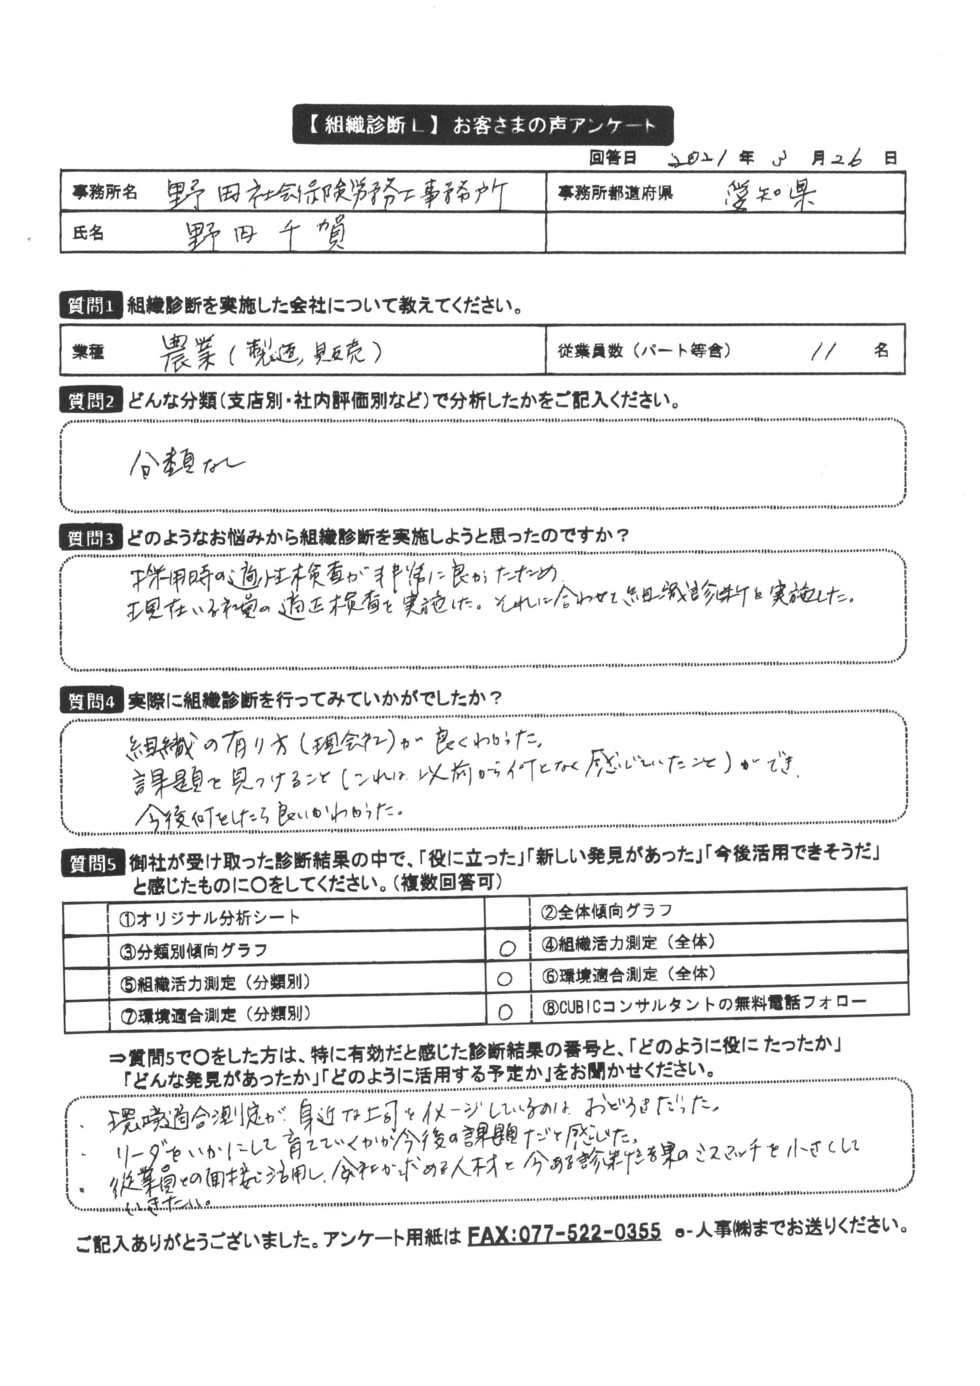 【組織診断L】お客さまの声アンケート
回答日 2021年3月26日
事務所名 野田社会保険労務士事務所 事務所都道府県 愛知県
氏名 野田千賀
質問1 組織診断を実施した会社について教えてください。
業種 農業(製造,販売) 従業員数(パート等含) 11名
質問2 どんな分類(支店別・社内評価別など)で分析したかをご記入ください。
分類なし
質問3 どのようなお悩みから組織診断を実施しようと思ったのですか?
採用時の適性検査が非常に良かったため
現在いる社員の適正検査を実施した。それに合わせて組織診断を実施した。
質問4 実際に組織診断を行ってみていかがでしたか?
組織の有り方(現会社)が良くわかった。
課題を見つけること(これは以前から何となく感じていたこと)ができ、
今後何をしたら良いかわかった。
質問5 御社が受け取った診断結果の中で、「役に立った」「新しい発見があった」「今後活用できそうだ」
と感じたものに〇をしてください。(複数回答可)
①オリジナル分析シート ②全体傾向グラフ
③分類別傾向グラフ ○ ④組織活力測定(全体)
⑤組織活力測定(分類別) ○ ⑥環境適合測定(全体)
⑦環境適合測定(分類別) ○ ⑧CUBICコンサルタントの無料電話フォロー
⇒質問5で〇をした方は、特に有効だと感じた診断結果の番号と、「どのように役にたったか」
「どんな発見があったか」「どのように活用する予定か」をお聞かせください。
・環境適合測定が、身近な上司をイメージしているのは、おどろきだった。
・リーダをいかにして育てていくかが今後の課題だと感じた。
・従業員との面接に活用し、会社が求める人材と今ある診断結果のミスマッチを小さくして
いきたい。
ご記入ありがとうございました。アンケート用紙は FAX:077-522-0355 e-人事㈱までお送りください。